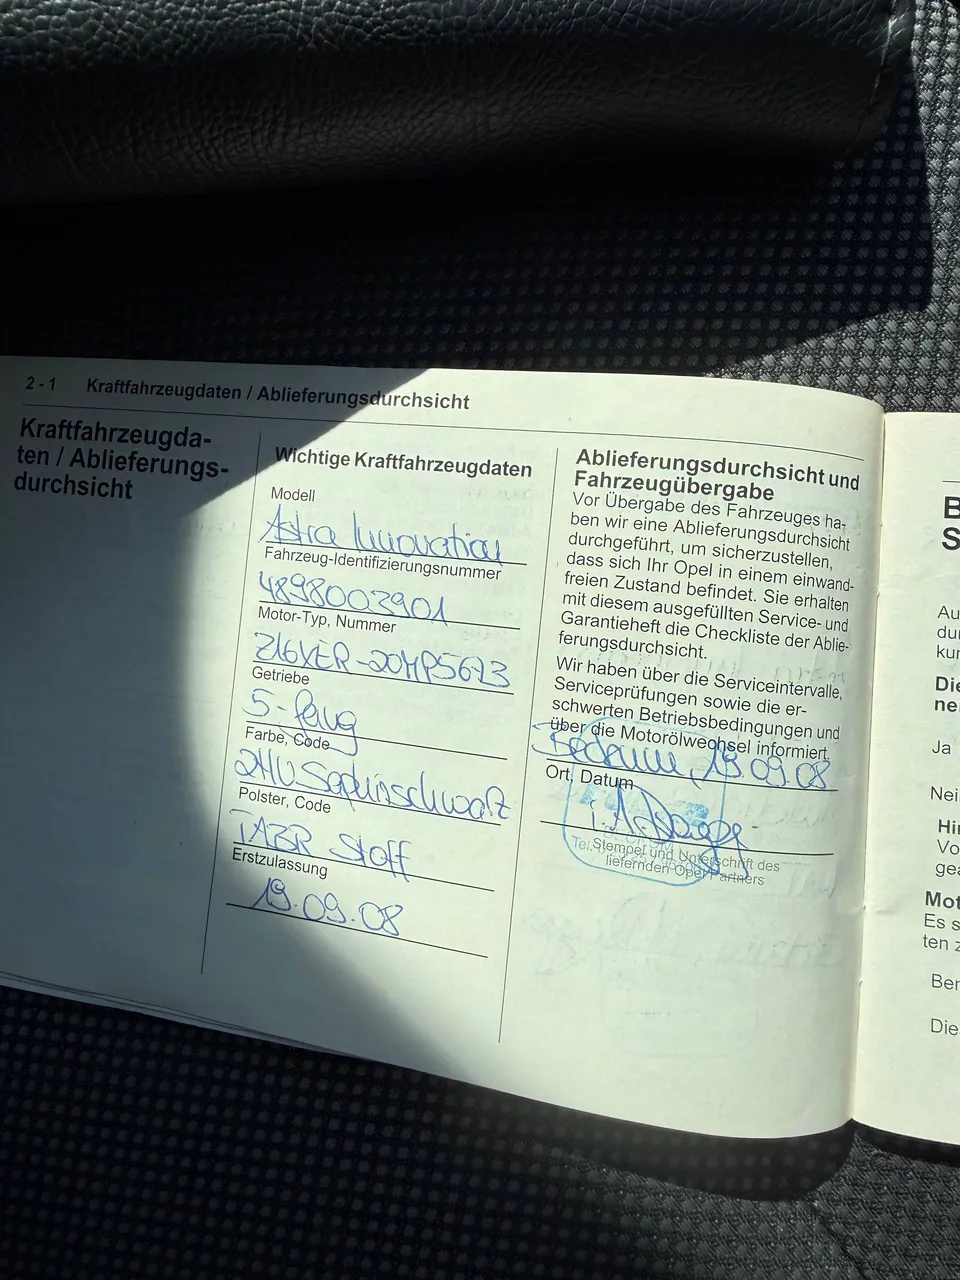 2 - 1 Kraftfahrzeugdaten / Ablieferungsdurchsicht
Kraftfahrzeugda-
ten / Ablieferungs-
durchsicht
Wichtige Kraftfahrzeugdaten
Modell
Astra Innovation
Fahrzeug-Identifizierungsnummer
4898003901
Motor-Typ, Nummer
Z16XER-20MP5673
Getriebe
5-
Farbe, Code
Saphirschwarz
Polster, Code
TABR Stoff
Erstzulassung
19.09.08
Ablieferungsdurchsicht und
Fahrzeugübergabe
Vor Übergabe des Fahrzeuges ha-
ben wir eine Ablieferungsdurchsicht
durchgeführt, um sicherzustellen,
dass sich Ihr Opel in einem einwand-
freien Zustand befindet. Sie erhalten
mit diesem ausgefüllten Service- und
Garantieheft die Checkliste der Ablie-
ferungsdurchsicht.
Wir haben über die Serviceintervalle,
Serviceprüfungen sowie die er-
schwerten Betriebsbedingungen und
über die Motorölwechsel informiert.
19.09.08
Ort, Datum
i.A.
Tel.
Stempel und Unterschrift des
liefernden Opel Partners
B
S
Au
du
ku
Die
ne
Ja
Nei
Hi
Vo
gea
Mot
Es s
ten z
Ber
Die